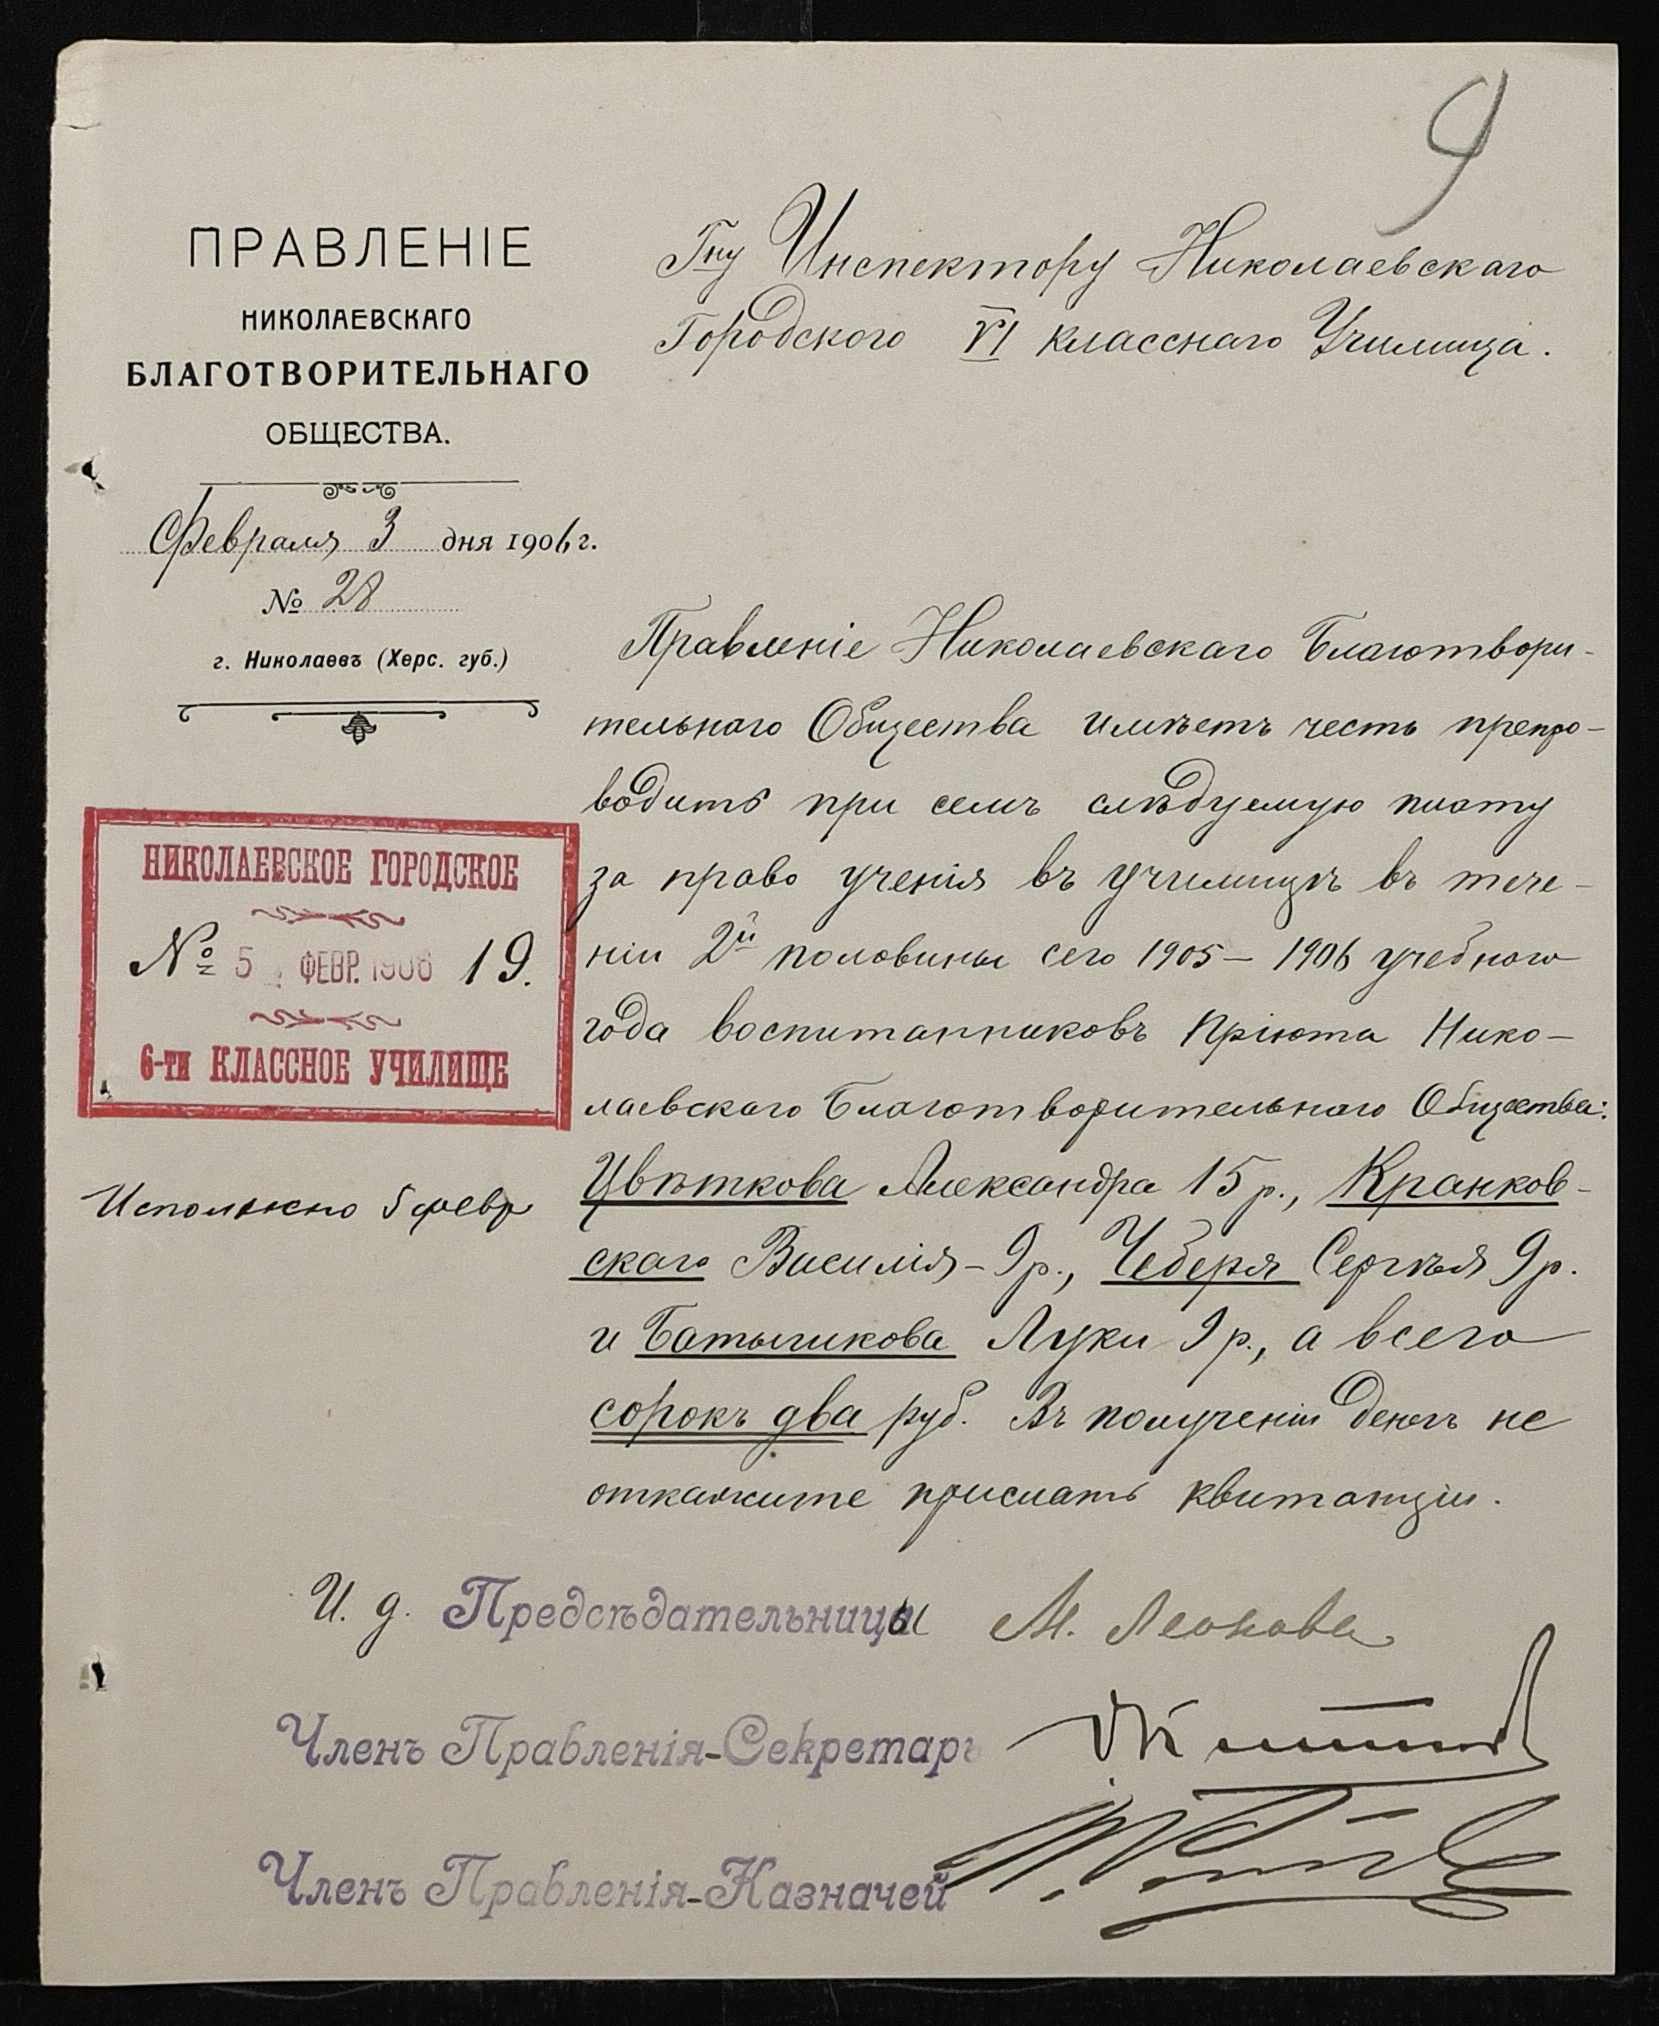 9
ПРАВЛЕНІЕ
НИКОЛАЕВСКАГО
БЛАГОТВОРИТЕЛЬНАГО
ОБЩЕСТВА.
Февраля 3 дня 1906 г.
№ 28
г. Николаевъ (Херс. губ.)
Гну Инспектору Николаевскаго
Городского VI класснаго Училища.
Правленіе Николаевскаго Благотвори-
тельнаго Общества имѣетъ честь препро-
водить при семъ слѣдуемую плату
за право ученія въ училищѣ въ тече-
ніи 2й половины сего 1905 – 1906 учебного
года воспитанниковъ Пріюта Нико-
лаевскаго Благотворительнаго Общества:
Цвѣткова Александра 15 р., Кранков-
скаго Василія – 9 р., Чеберя Сергѣя 9 р.
и Батычикова Луки 9 р., а всего
сорокъ два руб. Въ полученіи денегъ не
откажите прислать квитанціи.
НИКОЛАЕВСКОЕ ГОРОДСКОЕ
№ 5 ФЕВР. 1906 19.
6-ти КЛАССНОЕ УЧИЛИЩЕ
Исполнено 5 февр
И. д. Предсѣдательницы М. Леонова
Членъ Правленія-Секретарь
Членъ Правленія-Казначей